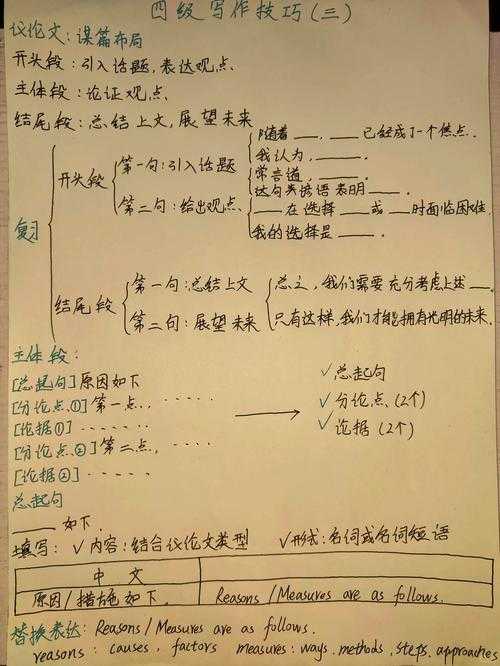 四级写作技巧(三)
议论文:谋篇布局
开头段:引入话题,表达观点.
主体段:论证观点.
结尾段:总结上文,展望未来
复习
开头段
第一句:引入话题
随着___,___已经成了一个焦点.
我认为,___.
常言道,___.
这句英谚语表明___.
第二句:给出观点.
___在选择___或___时面临困难.
我的选择是___.
结尾段
第一句:总结上文
总之,我们需要充分考虑上述___.
第二句:展望未来
只有这样,我们才能拥有光明的未来.
主体段:
[总起句]原因如下
[分论点①]第一点,.....
[论据①].......
[分论点②]第二点,.....
[论据②].......
√总起句
√分论点(2个)
√论据(2个)
总起句
___如下.
填写:√内容:结合议论文类型 √形式:名词或名词短语
中文
原因/措施如下. Reasons/Measures are as follows.
替换表达:Reasons/Measures are as follows.
reasons:causes,factors measures:ways.methods,steps.approaches